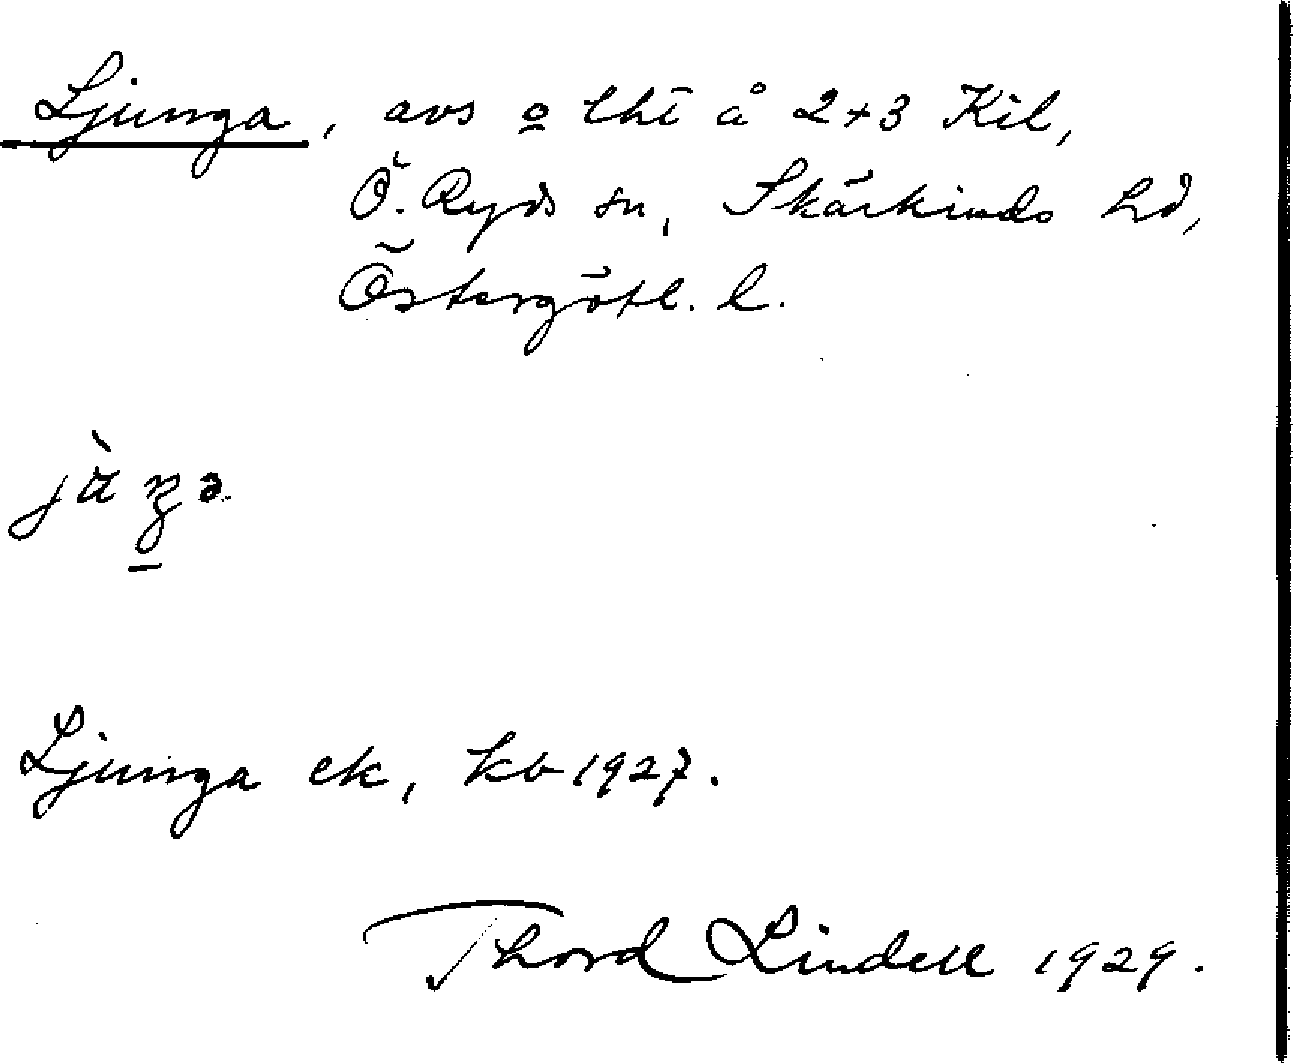 Ljunga, avs o lht å 2+3 Kil,
Ö. Ryds sn, Skärkinds hd,
Östergötl. l.
Ljunga ek, kb 1927.
Thord Lindell 1929.